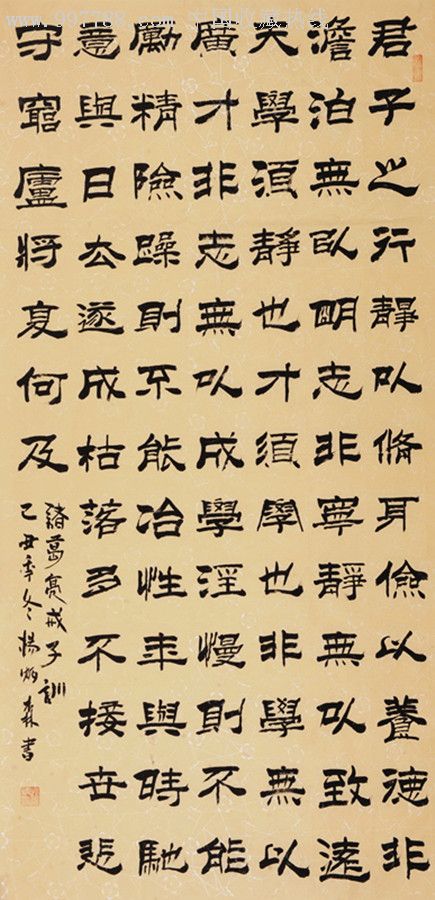 www.997788.com 中国收藏热线
君子之行靜以脩身儉以養德非
澹泊無以明志非寧靜無以致遠
夫學須靜也才須學也非學無以
廣才非志無以成學淫慢則不能
勵精險躁則不能冶性年與時馳
意與日去遂成枯落多不接世悲
守窮廬將复何及
諸葛亮戒子訓
乙丑年冬楊炳森書